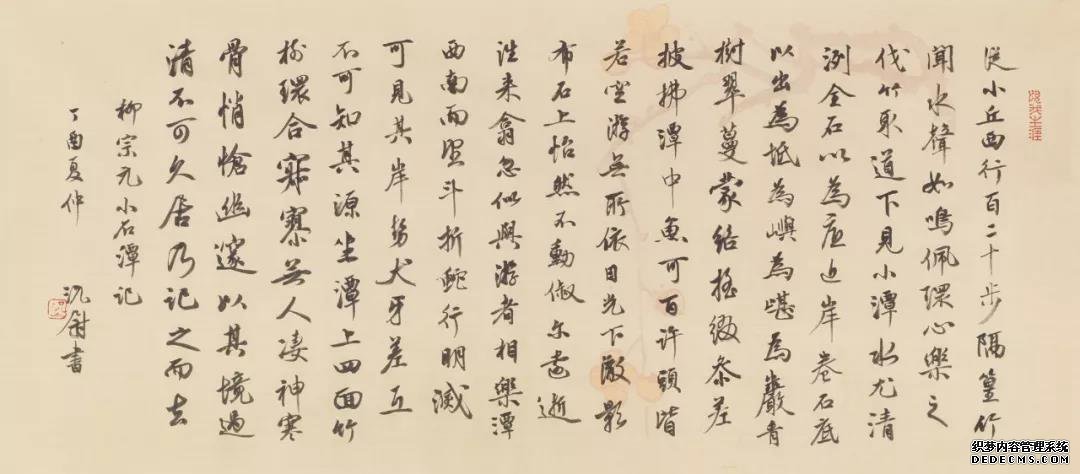 從小丘西行百二十步隔篁竹
聞水聲如鳴佩環心樂之
伐竹取道下見小潭水尤清
洌全石以為底近岸卷石底
以出為坻為嶼為嵁為巖青
樹翠蔓蒙絡搖綴參差
披拂潭中魚可百許頭皆
若空游無所依日光下澈影
布石上怡然不動俶尔遠逝
往来翕忽似與游者相樂潭
西南而望斗折蛇行明滅
可見其岸勢犬牙差互
不可知其源坐潭上四面竹
樹環合寂寥無人凄神寒
骨悄愴幽邃以其境過
清不可久居乃記之而去
柳宗元小石潭記
丁酉夏仲 書
织梦内容管理系统
DEDECMS.COM